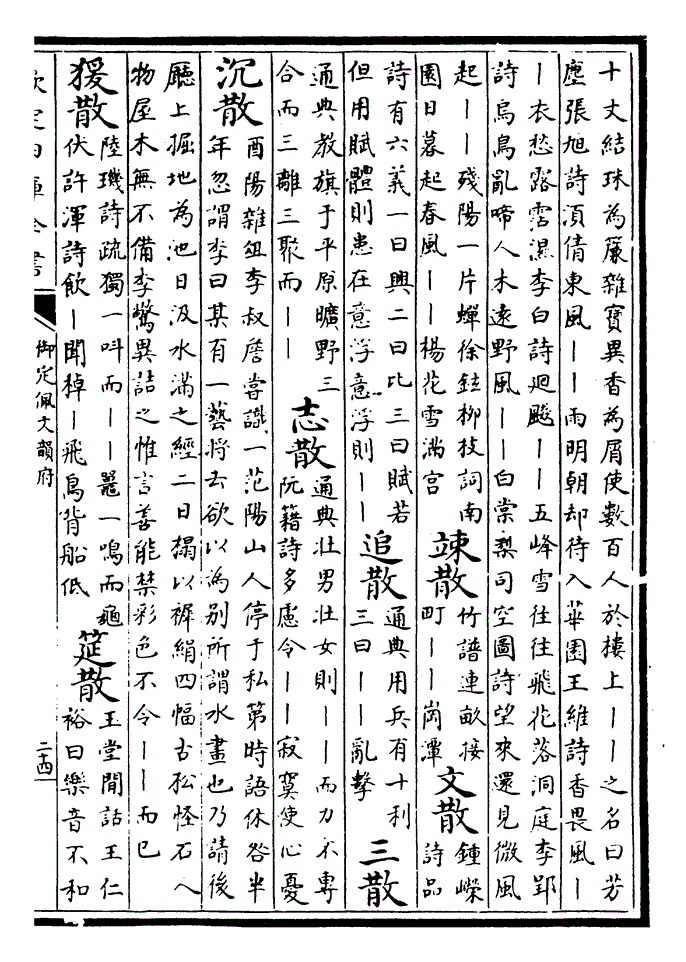 十丈結珠為簾雜寶異香為屑使數百人於樓上丨丨之名曰芳
塵張旭詩湏倩東風丨丨雨明朝却待入華園王維詩香畏風丨
丨衣愁露霑濕李白詩廻飈丨丨五峰雪往往飛花落洞庭李郢
詩烏鳥亂啼人未逺野風丨丨白棠梨司空圖詩望來還見微風
起丨丨殘陽一片蟬徐鉉柳枝詞南
園日暮起春風丨丨楊花雪滿宫
竦散
竹譜連畝接
町丨丨崗潭
文散
鍾嶸
詩品
詩有六義一曰興二曰比三曰賦若
但用賦體則患在意浮意浮則丨丨
追散
通典用兵有十利
三曰丨丨亂擊
三散
通典教旗于平原曠野三
合而三離三聚而丨丨
志散
通典壮男壮女則丨丨而力不專
阮籍詩多慮令丨丨寂寞使心憂
沉散
酉陽雜俎李叔詹嘗識一范陽山人停于私第時語休咎半
年忽謂李曰某有一藝將去欲以為别所謂水畫也乃請後
廳上掘地為池日汲水滿之經二日搨以褥絹四幅古松怪石人
物屋木無不備李驚異詰之惟言善能禁彩色不令丨丨而已
猨散
陸璣詩疏獨一呌而丨丨鼉一鳴而龜
伏許渾詩飲丨聞棹丨飛鳥背船低
筵散
玉堂閒話王仁
裕曰樂音不和
欽定四庫全書
御定佩文韻府
二十四